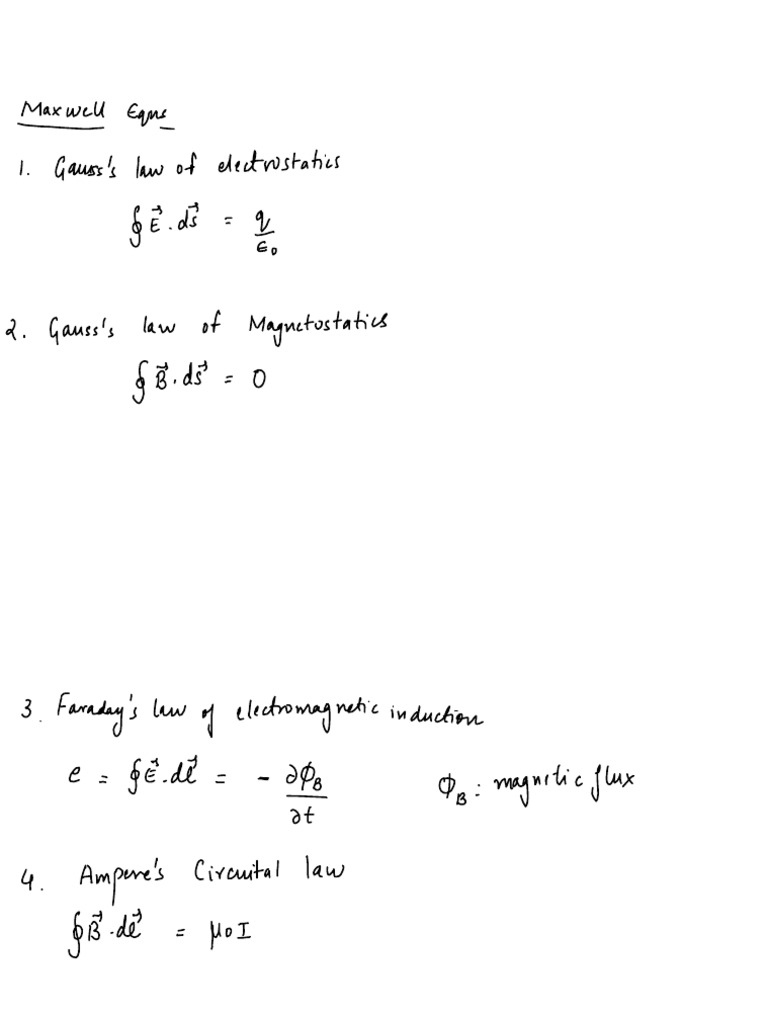 Maxwell Eqns
1. Gauss's law of electrostatics
∮ E⃗ . ds⃗ = q/ε₀
2. Gauss's law of Magnetostatics
∮ B⃗ . ds⃗ = 0
3. Faraday's law of electromagnetic induction
e = ∮ E⃗ . dℓ⃗ = - ∂ϕ_B/∂t ϕ_B : magnetic flux
4. Ampere's Circuital law
∮ B⃗ . dℓ⃗ = μ₀I